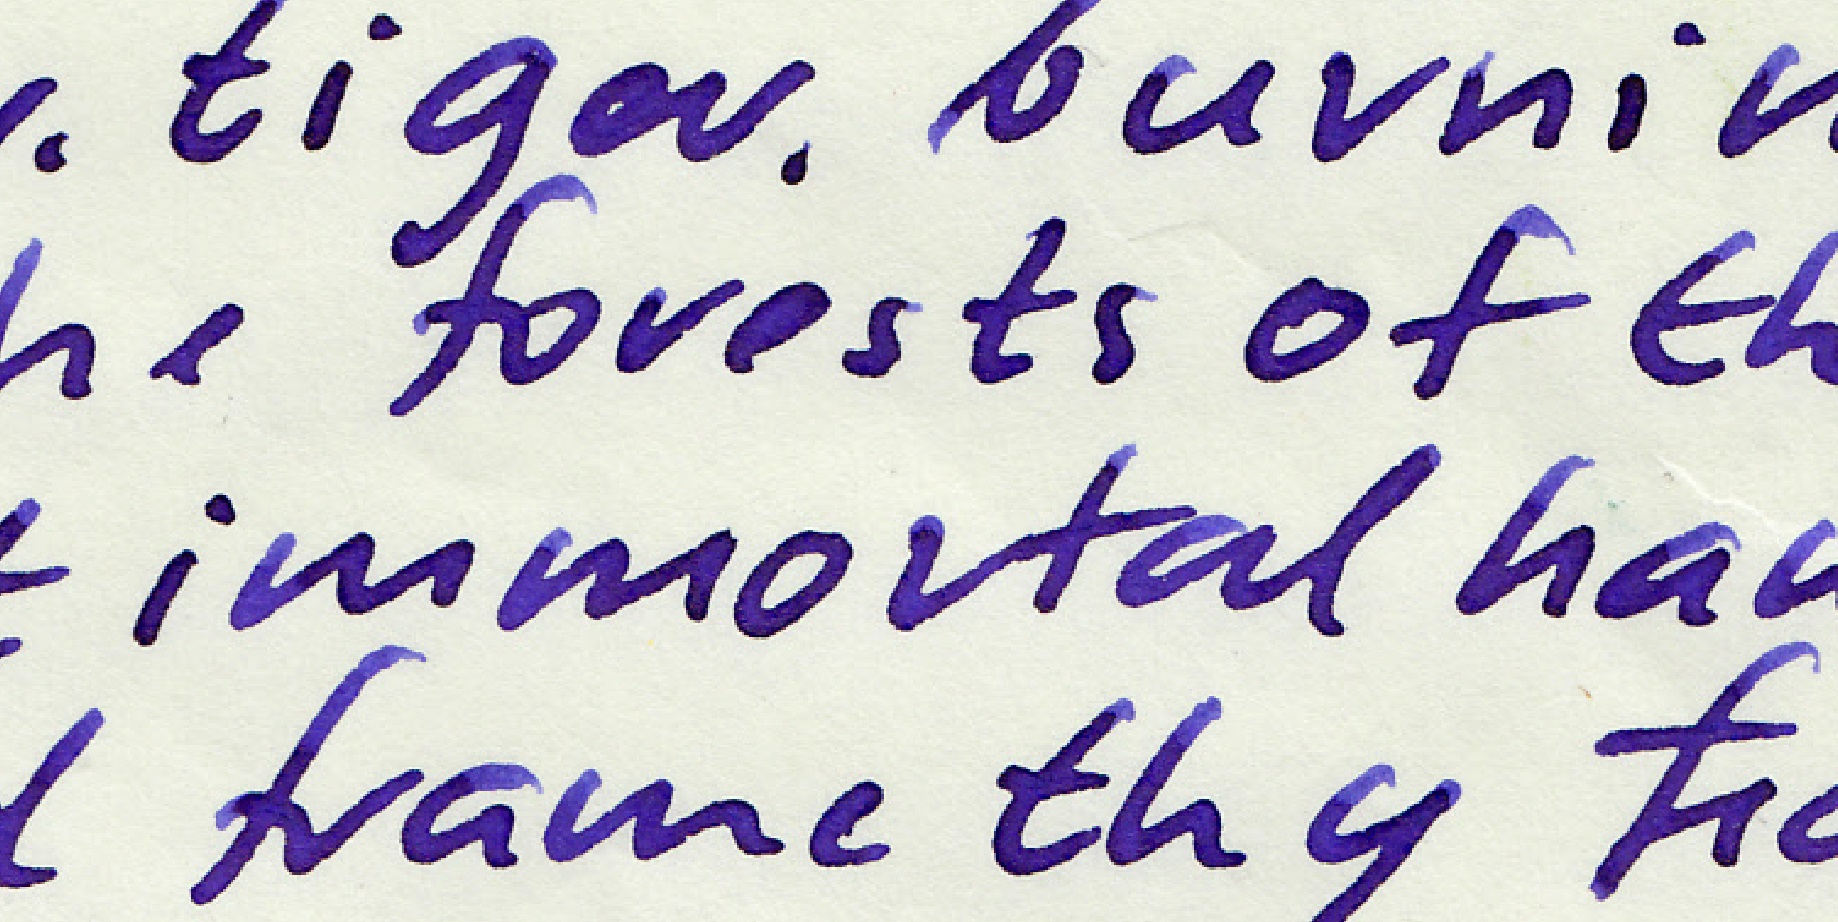 r. tiger. burnin
he forests of th
t immortal han
d frame thy fea